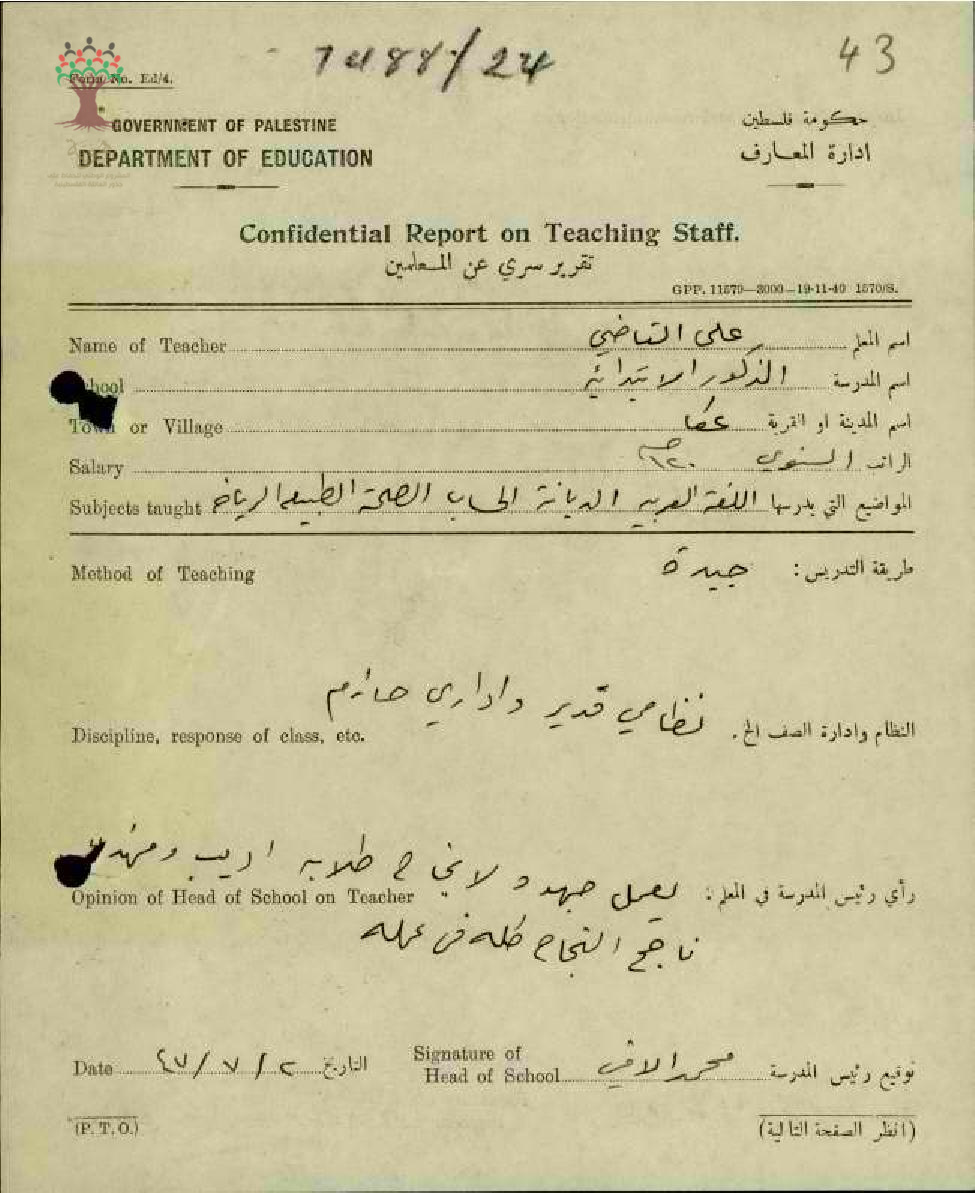 7488/24
43
Form No. Ed/4.
GOVERNMENT OF PALESTINE
حكومة فلسطين
DEPARTMENT OF EDUCATION
ادارة المعارف
Confidential Report on Teaching Staff.
تقرير سري عن المعلمين
GPP. 11579—3000—19-11-40 1570/S.
Name of Teacher علي القاضي اسم المعلم
School الذكور الابتدائية اسم المدرسة
Town or Village عكا اسم المدينة او القرية
Salary ١٢٠ الراتب السنوي
Subjects taught اللغة العربيه الديانة الحساب الصحة الطبيعه الرياضه المواضيع التي يدرسها
Method of Teaching جيدة طريقة التدريس:
نظامي قدير واداري حازم
Discipline, response of class, etc. النظام وادارة الصف الخ.
يعمل جهده لانجاح طلابه اديب
Opinion of Head of School on Teacher رأي رئيس المدرسة في المعلم:
ناجح النجاح كله في عمله
Date ٢/٧/٤٧ التاريخ
Signature of
Head of School محمد توقيع رئيس المدرسة
(P. T. O.)
(انظر الصفحة التالية)